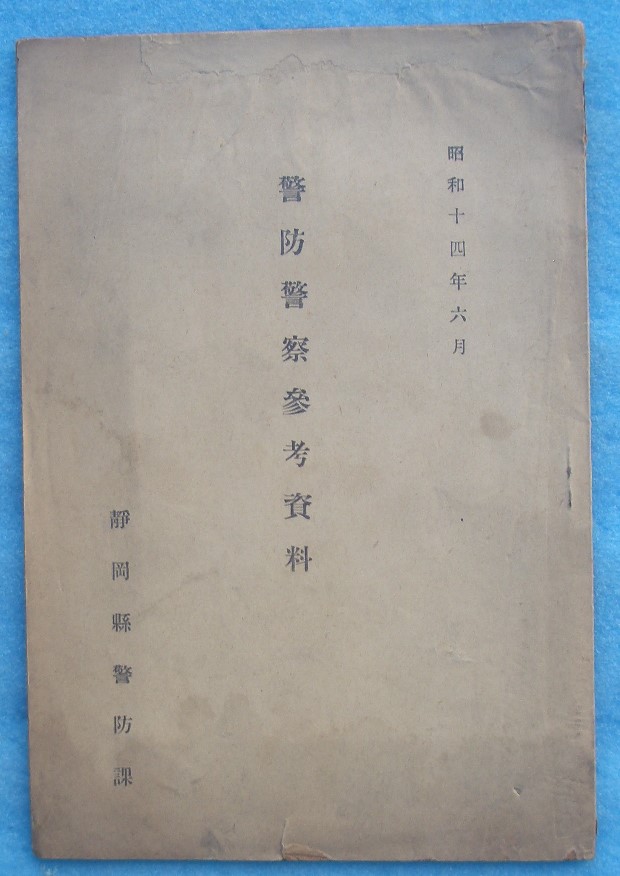 昭和十四年六月
警防警察參考資料
靜岡縣警防課